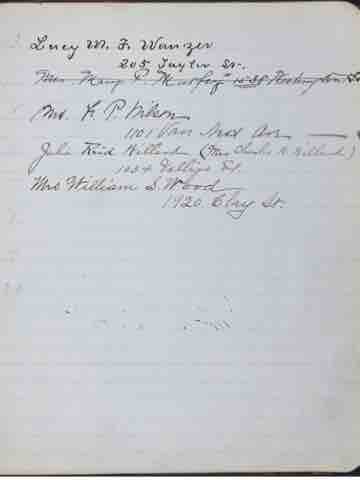 Lucy M. F. Wanzer
205 Taylor St.
Mrs. Mary P. 1538 Washington St
Mrs. F. P. Wilson
1101 Van Ness Ave
Julia Hilland (Mrs Charles Hilland)
1034 Vallejo St.
Mrs William S. Wood
1920 Clay St.